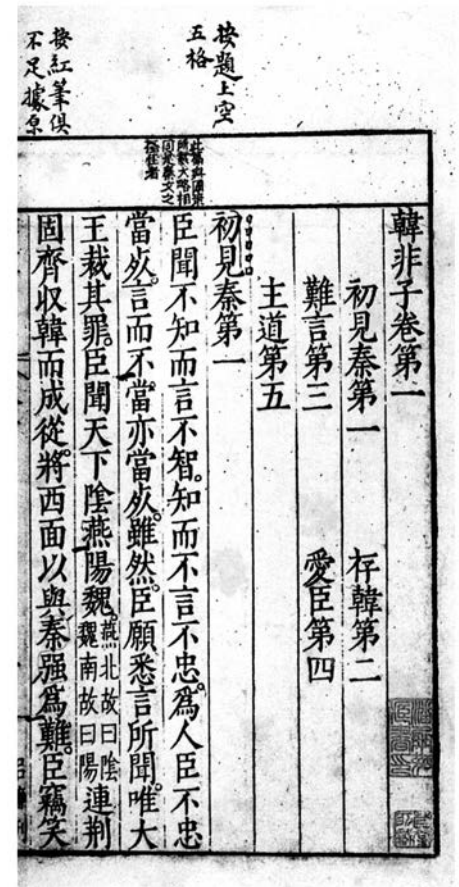 按題上空
五格
按紅筆俱
不足據原
韓非子卷第一
初見秦第一　存韓第二
難言第三　愛臣第四
主道第五
初見秦第一
臣聞不知而言不智。知而不言不忠。爲人臣不忠
當死。言而不當。亦當死。雖然。臣願悉言所聞。唯大
王裁其罪。臣聞天下陰燕陽魏。燕北故曰陰魏南故曰陽連荆
固齊收韓而成從。將西面以與秦强爲難。臣竊笑